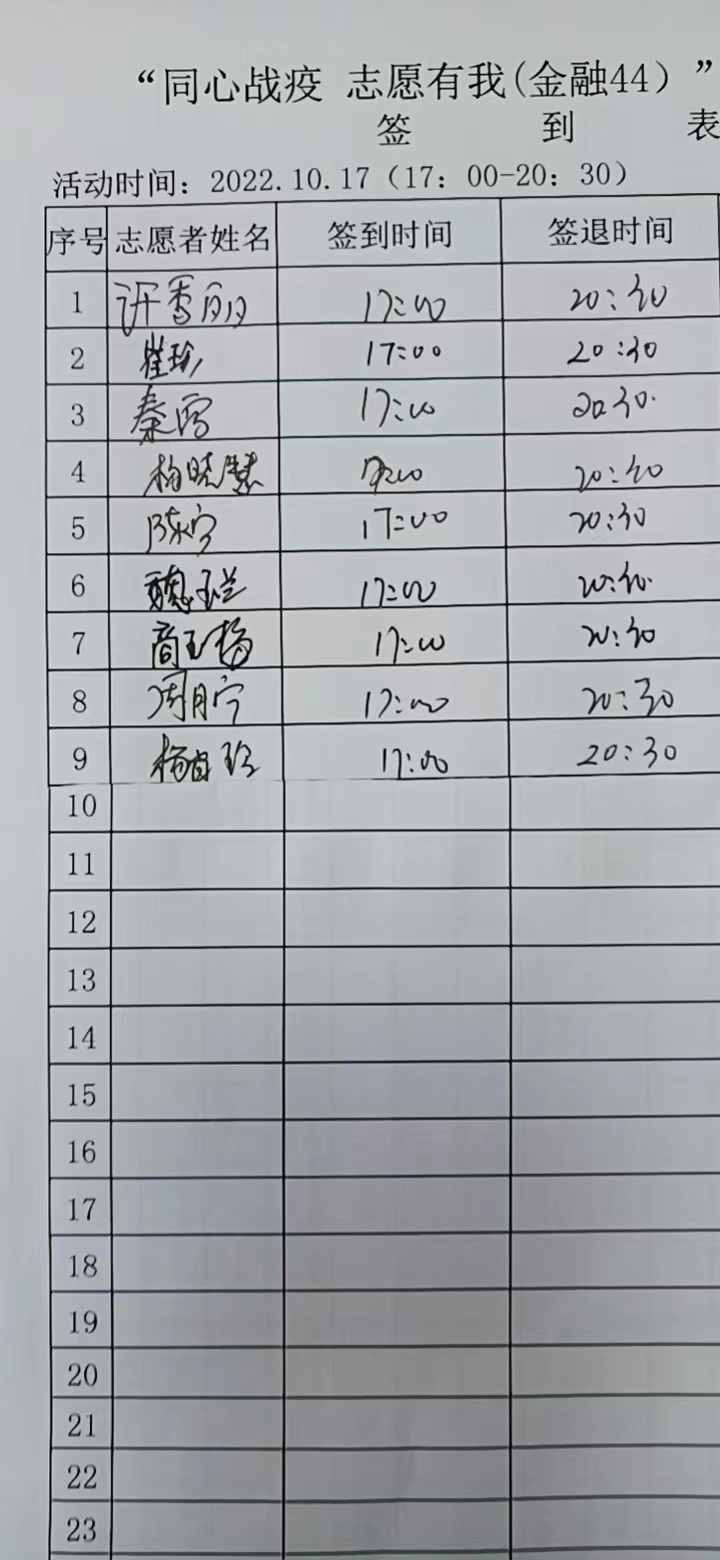 “同心战疫 志愿有我(金融44)”
签 到 表
活动时间：2022.10.17（17：00-20：30）
序号 志愿者姓名 签到时间 签退时间
1 许雪丽 17:00 20:30
2 崔 17:00 20:30
3 秦雪 17:00 20:30
4 杨晓慧 17:00 20:30
5 陈宇 17:00 20:30
6 魏 17:00 20:30
7 商玉杨 17:00 20:30
8 周月宁 17:00 20:30
9 杨 17:00 20:30
10
11
12
13
14
15
16
17
18
19
20
21
22
23